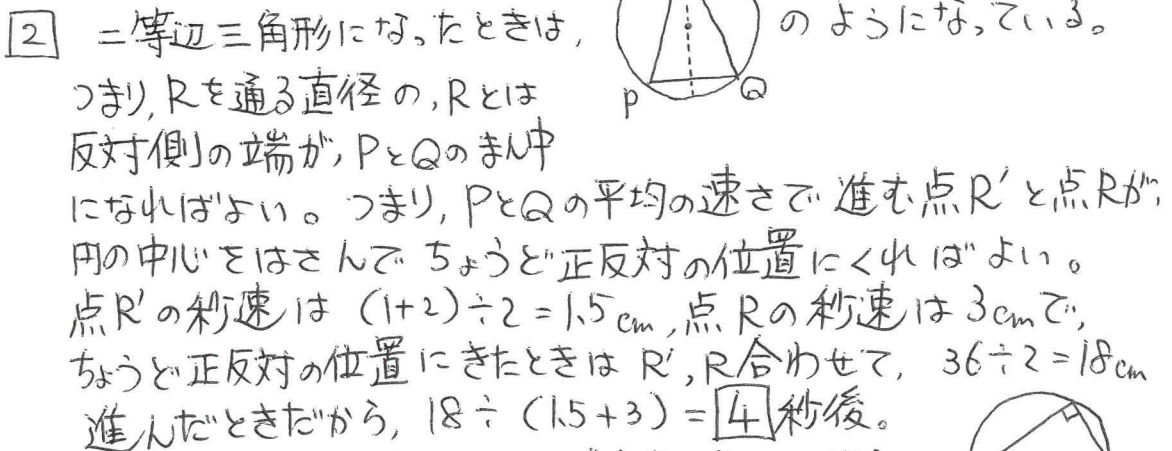 2 二等辺三角形になったときは, のようになっている。
P Q
つまり, Rを通る直径の, Rとは
反対側の端が, PとQのまん中
になればよい。つまり, PとQの平均の速さで進む点R'と点Rが,
円の中心をはさんでちょうど正反対の位置にくればよい。
点R'の秒速は (1+2)÷2=1.5cm, 点Rの秒速は3cmで,
ちょうど正反対の位置にきたときは R', R合わせて, 36÷2=18cm
進んだときだから, 18÷(1.5+3)=4秒後。